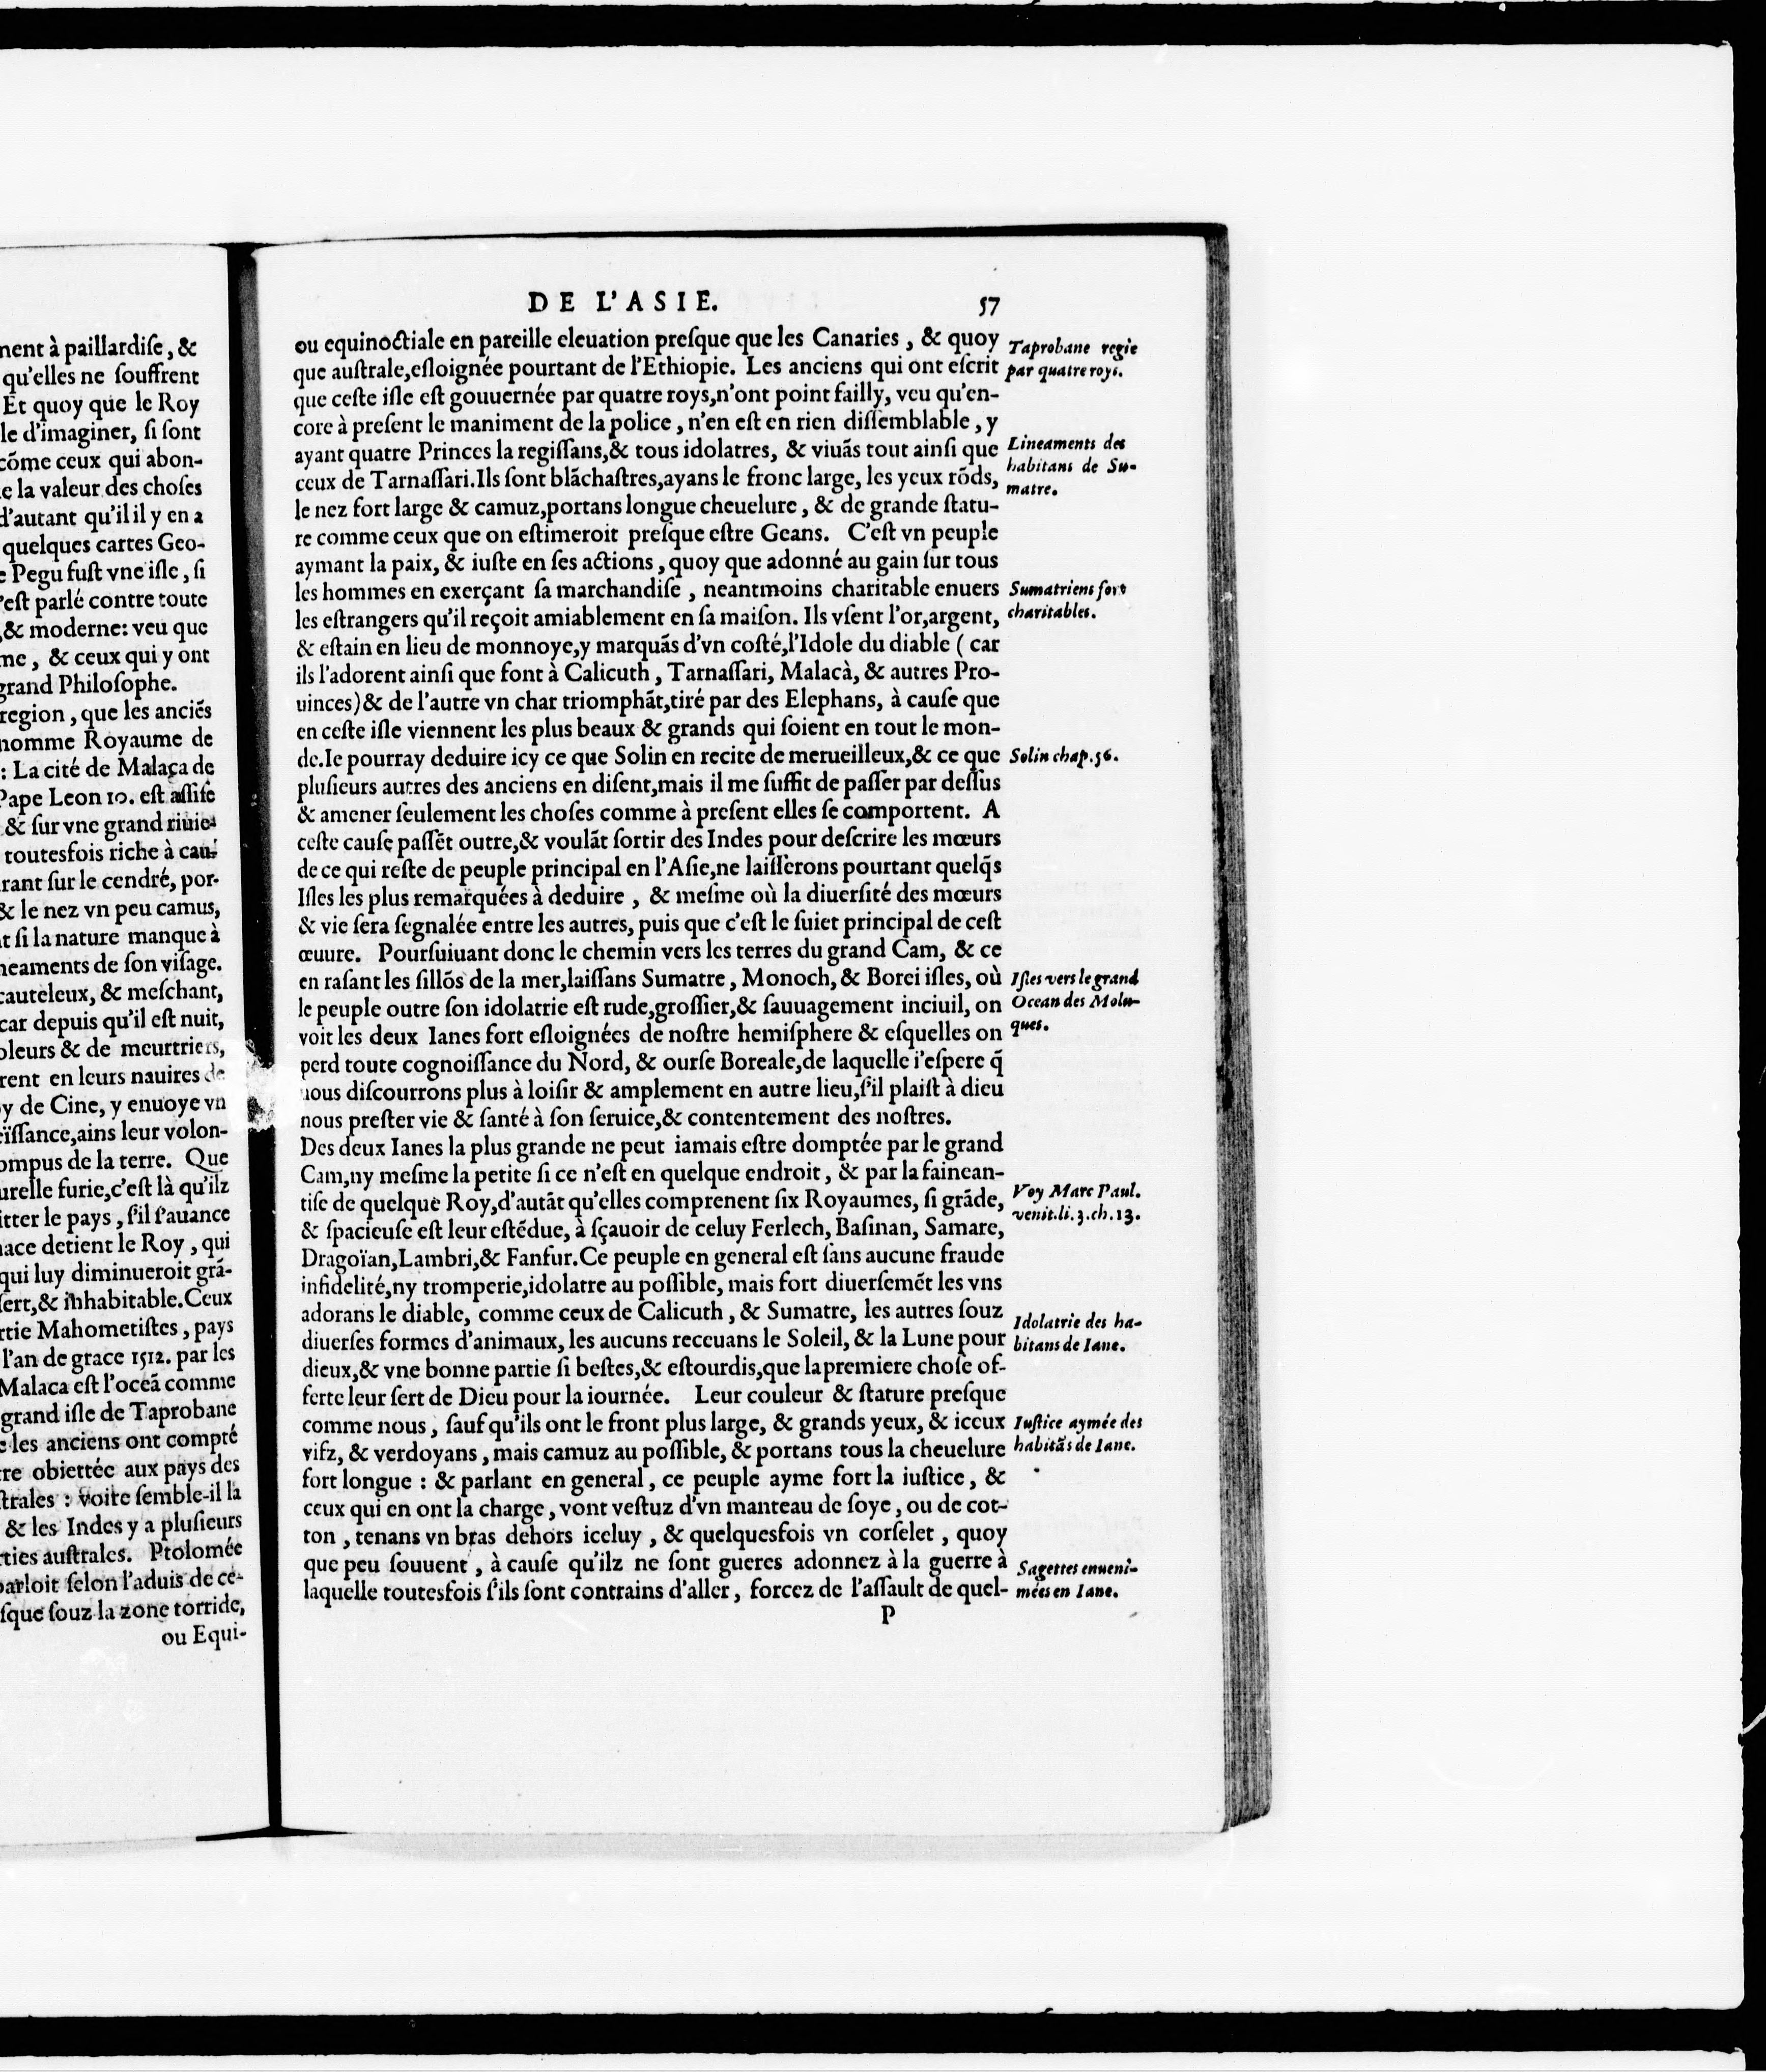 ment à paillardiſe, &
qu'elles ne ſouffrent
Et quoy que le Roy
le d'imaginer, ſi ſont
cõme ceux qui abon-
e la valeur des choſes
d'autant qu'il il y en a
quelques cartes Geo-
e Pegu fuſt vne iſle, ſi
'eſt parlé contre toute
,& moderne: veu que
me, & ceux qui y ont
grand Philoſophe.
region, que les anciẽs
nomme Royaume de
: La cité de Malaça de
Pape Leon 10. eſt aſſiſe
& ſur vne grand riuie-
toutesfois riche à cau-
rant ſur le cendré, por-
& le nez vn peu camus,
t ſi la nature manque à
neaments de ſon viſage.
cauteleux, & meſchant,
car depuis qu'il eſt nuit,
oleurs & de meurtriers,
rent en leurs nauires de
y de Cine, y enuoye vn
eïſſance,ains leur volon-
ompus de la terre. Que
urelle furie,c'eſt là qu'ilz
itter le pays, ſ'il ſ'auance
nace detient le Roy, qui
qui luy diminueroit grã-
ſert,& inhabitable.Ceux
rtie Mahometiſtes, pays
l'an de grace 1512. par les
Malaca eſt l'oceã comme
grand iſle de Taprobane
e les anciens ont compté
re obiettée aux pays des
ſtrales : voire ſemble-il la
& les Indes y a pluſieurs
rties auſtrales. Ptolomée
parloit ſelon l'aduis de ce-
ſque ſouz la zone torride,
ou Equi-
DE L'ASIE. 57
ou equinoctiale en pareille eleuation preſque que les Canaries, & quoy
que auſtrale,eſloignée pourtant de l'Ethiopie. Les anciens qui ont eſcrit
que ceſte iſle eſt gouuernée par quatre roys,n'ont point failly, veu qu'en-
core à preſent le maniment de la police, n'en eſt en rien diſſemblable, y
ayant quatre Princes la regiſſans,& tous idolatres, & viuãs tout ainſi que
ceux de Tarnaſſari.Ils ſont blãchaſtres,ayans le fronc large, les yeux rõds,
le nez fort large & camuz,portans longue cheuelure, & de grande ſtatu-
re comme ceux que on eſtimeroit preſque eſtre Geans. C'eſt vn peuple
aymant la paix, & iuſte en ſes actions, quoy que adonné au gain ſur tous
les hommes en exerçant ſa marchandiſe, neantmoins charitable enuers
les eſtrangers qu'il reçoit amiablement en ſa maiſon. Ils vſent l'or,argent,
& eſtain en lieu de monnoye,y marquãs d'vn coſté,l'Idole du diable ( car
ils l'adorent ainſi que font à Calicuth, Tarnaſſari, Malacà, & autres Pro-
uinces)& de l'autre vn char triomphãt,tiré par des Elephans, à cauſe que
en ceſte iſle viennent les plus beaux & grands qui ſoient en tout le mon-
de.Ie pourray deduire icy ce que Solin en recite de merueilleux,& ce que
pluſieurs autres des anciens en diſent,mais il me ſuffit de paſſer par deſſus
& amener ſeulement les choſes comme à preſent elles ſe comportent. A
ceſte cauſe paſſẽt outre,& voulãt ſortir des Indes pour deſcrire les mœurs
de ce qui reſte de peuple principal en l'Aſie,ne laiſſerons pourtant quelq̃s
Iſles les plus remarquées à deduire, & meſme où la diuerſité des mœurs
& vie ſera ſegnalée entre les autres, puis que c'eſt le ſuiet principal de ceſt
œuure. Pourſuiuant donc le chemin vers les terres du grand Cam, & ce
en raſant les ſillõs de la mer,laiſſans Sumatre, Monoch,& Borei iſles, où
le peuple outre ſon idolatrie eſt rude,groſſier,& ſauuagement inciuil, on
voit les deux Ianes fort eſloignées de noſtre hemiſphere & eſquelles on
perd toute cognoiſſance du Nord, & ourſe Boreale,de laquelle i'eſpere q̃
nous diſcourrons plus à loiſir & amplement en autre lieu,ſ'il plaiſt à dieu
nous preſter vie & ſanté à ſon ſeruice,& contentement des noſtres.
Des deux Ianes la plus grande ne peut iamais eſtre domptée par le grand
Cam,ny meſme la petite ſi ce n'eſt en quelque endroit, & par la fainean-
tiſe de quelque Roy,d'autãt qu'elles comprenent ſix Royaumes, ſi grãde,
& ſpacieuſe eſt leur eſtẽdue, à ſçauoir de celuy Ferlech, Baſinan, Samare,
Dragoïan,Lambri,& Fanfur.Ce peuple en general eſt ſans aucune fraude
infidelité,ny tromperie,idolatre au poſſible, mais fort diuerſemẽt les vns
adorans le diable, comme ceux de Calicuth, & Sumatre, les autres ſouz
diuerſes formes d'animaux, les aucuns receuans le Soleil, & la Lune pour
dieux,& vne bonne partie ſi beſtes,& eſtourdis,que la premiere choſe of-
ferte leur ſert de Dieu pour la iournée. Leur couleur & ſtature preſque
comme nous, ſauf qu'ils ont le front plus large, & grands yeux, & iceux
vifz, & verdoyans, mais camuz au poſſible, & portans tous la cheuelure
fort longue : & parlant en general, ce peuple ayme fort la iuſtice, &
ceux qui en ont la charge, vont veſtuz d'vn manteau de ſoye, ou de cot-
ton, tenans vn bras dehors iceluy, & quelquesfois vn corſelet, quoy
que peu ſouuent, à cauſe qu'ilz ne ſont gueres adonnez à la guerre à
laquelle toutesfois ſ'ils ſont contrains d'aller, forcez de l'aſſault de quel-
P
Taprobane regie
par quatre roys.
Lineaments des
habitans de Su-
matre.
Sumatriens fort
charitables.
Solin chap.56.
Iſles vers le grand
Ocean des Molu-
ques.
Voy Marc Paul.
venit.li.3.ch.13.
Idolatrie des ha-
bitans de Iane.
Iuſtice aymée des
habitãs de Iane.
Sagettes enueni-
mées en Iane.